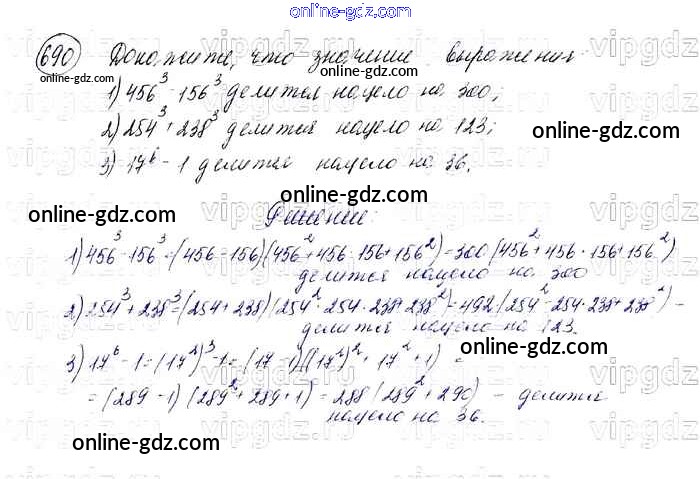 online-gdz.com
690 Докажите, что значение выражения
1) 456³ - 156³ делится нацело на 300;
2) 254³ + 238³ делится нацело на 123;
3) 17⁶ - 1 делится нацело на 36.
Решение:
1) 456³ - 156³ = (456 - 156)(456² + 456 · 156 + 156²) = 300 (456² + 456 · 156 + 156²)
делится нацело на 300
2) 254³ + 238³ = (254 + 238)(254² - 254 · 238 + 238²) = 492 (254² - 254 · 238 + 238²) -
делится нацело на 123.
3) 17⁶ - 1 = (17²)³ - 1 = (17 - 1)((17²)² + 17² + 1) =
= (289 - 1)(289² + 289 + 1) = 288 (289² + 290) - делится
нацело на 36.
online-gdz.com